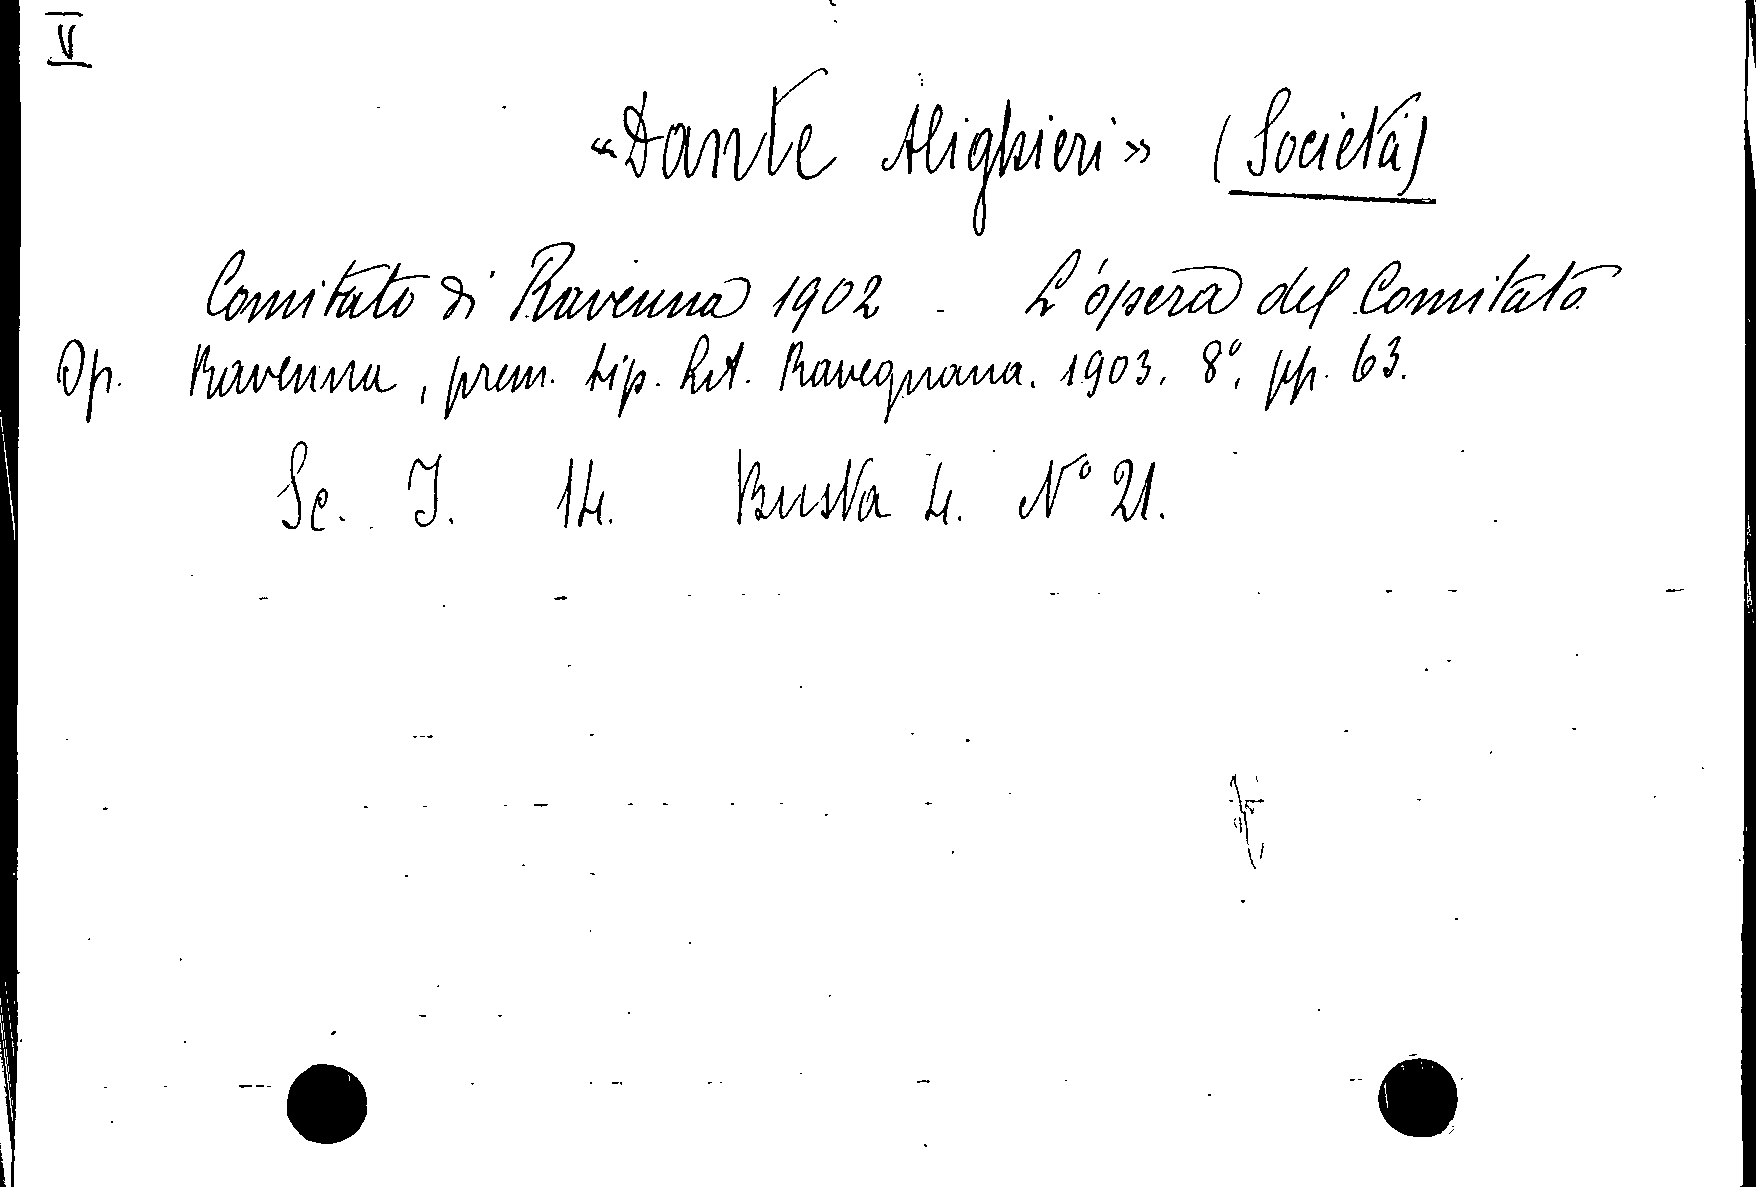 V
«Dante Alighieri» (Società)
Comitato di Ravenna 1902 - L'opera del Comitato
Op. Ravenna, prem. tip. lit. Ravegnana. 1903. 8°, pp. 63.
Sc. I. 14. Busta 4. N° 21.